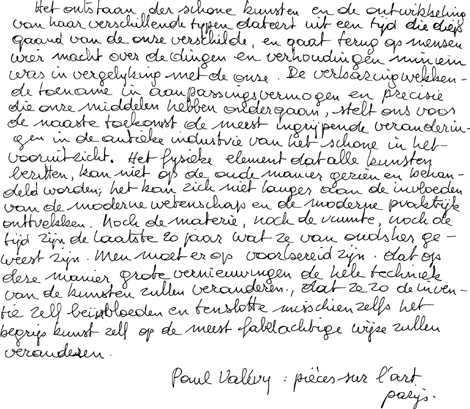 Het ontstaan, der schone kunsten en de ontwikkeling
van haar verschillende typen dateert uit een tijd die diep
gaand van de onze verschilde, en gaat terug op mensen
wier macht over de dingen en verhoudingen miniem
was in vergelyking met de onze. De verbazingwekken-
de toename in aanpassingsvermogen en precisie
die onze middelen hebben ondergaan, stelt ons voor
de naaste toekomst de meest ingrijpende veranderin-
gen in de antieke industrie van het schone in het
vooruitzicht. Het fysieke element dat alle kunsten
bezitten, kan niet op de oude manier gezien en behan-
deld worden; het kan zich niet langer aan de invloeden
van de moderne wetenschap en de moderne praktijk
onttrekken. Noch de materie, noch de ruimte, noch de
tijd zijn de laatste 20 jaar wat ze van oudsher ge-
weest zijn. Men moet er op voorbereid zijn. dat op
deze manier grote vernieuwingen de hele techniek
van de kunsten zullen veranderen., dat ze zo de inven-
tie zelf beïnvloeden en tenslotte misschien zelfs het
begrip kunst zelf op de meest fabelachtige wijze zullen
veranderen.
Paul Valévy : pièces sur l'art
parijs.